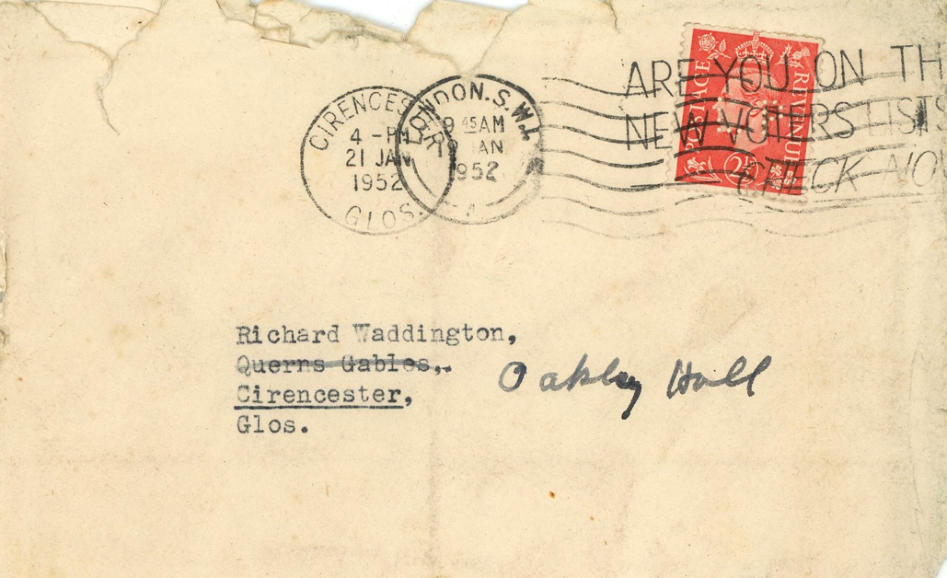 CIRENCESTER
4 - PM
21 JAN
1952
GLOS.
LONDON. S.W.1.
9 45 AM
JAN
1952
POSTAGE
REVENUE
2½D
ARE YOU ON TH
NEW VOTERS LISTS
CHECK NO
Richard Waddington,
Querns Gables,.
Oakley Hall
Cirencester,
Glos.